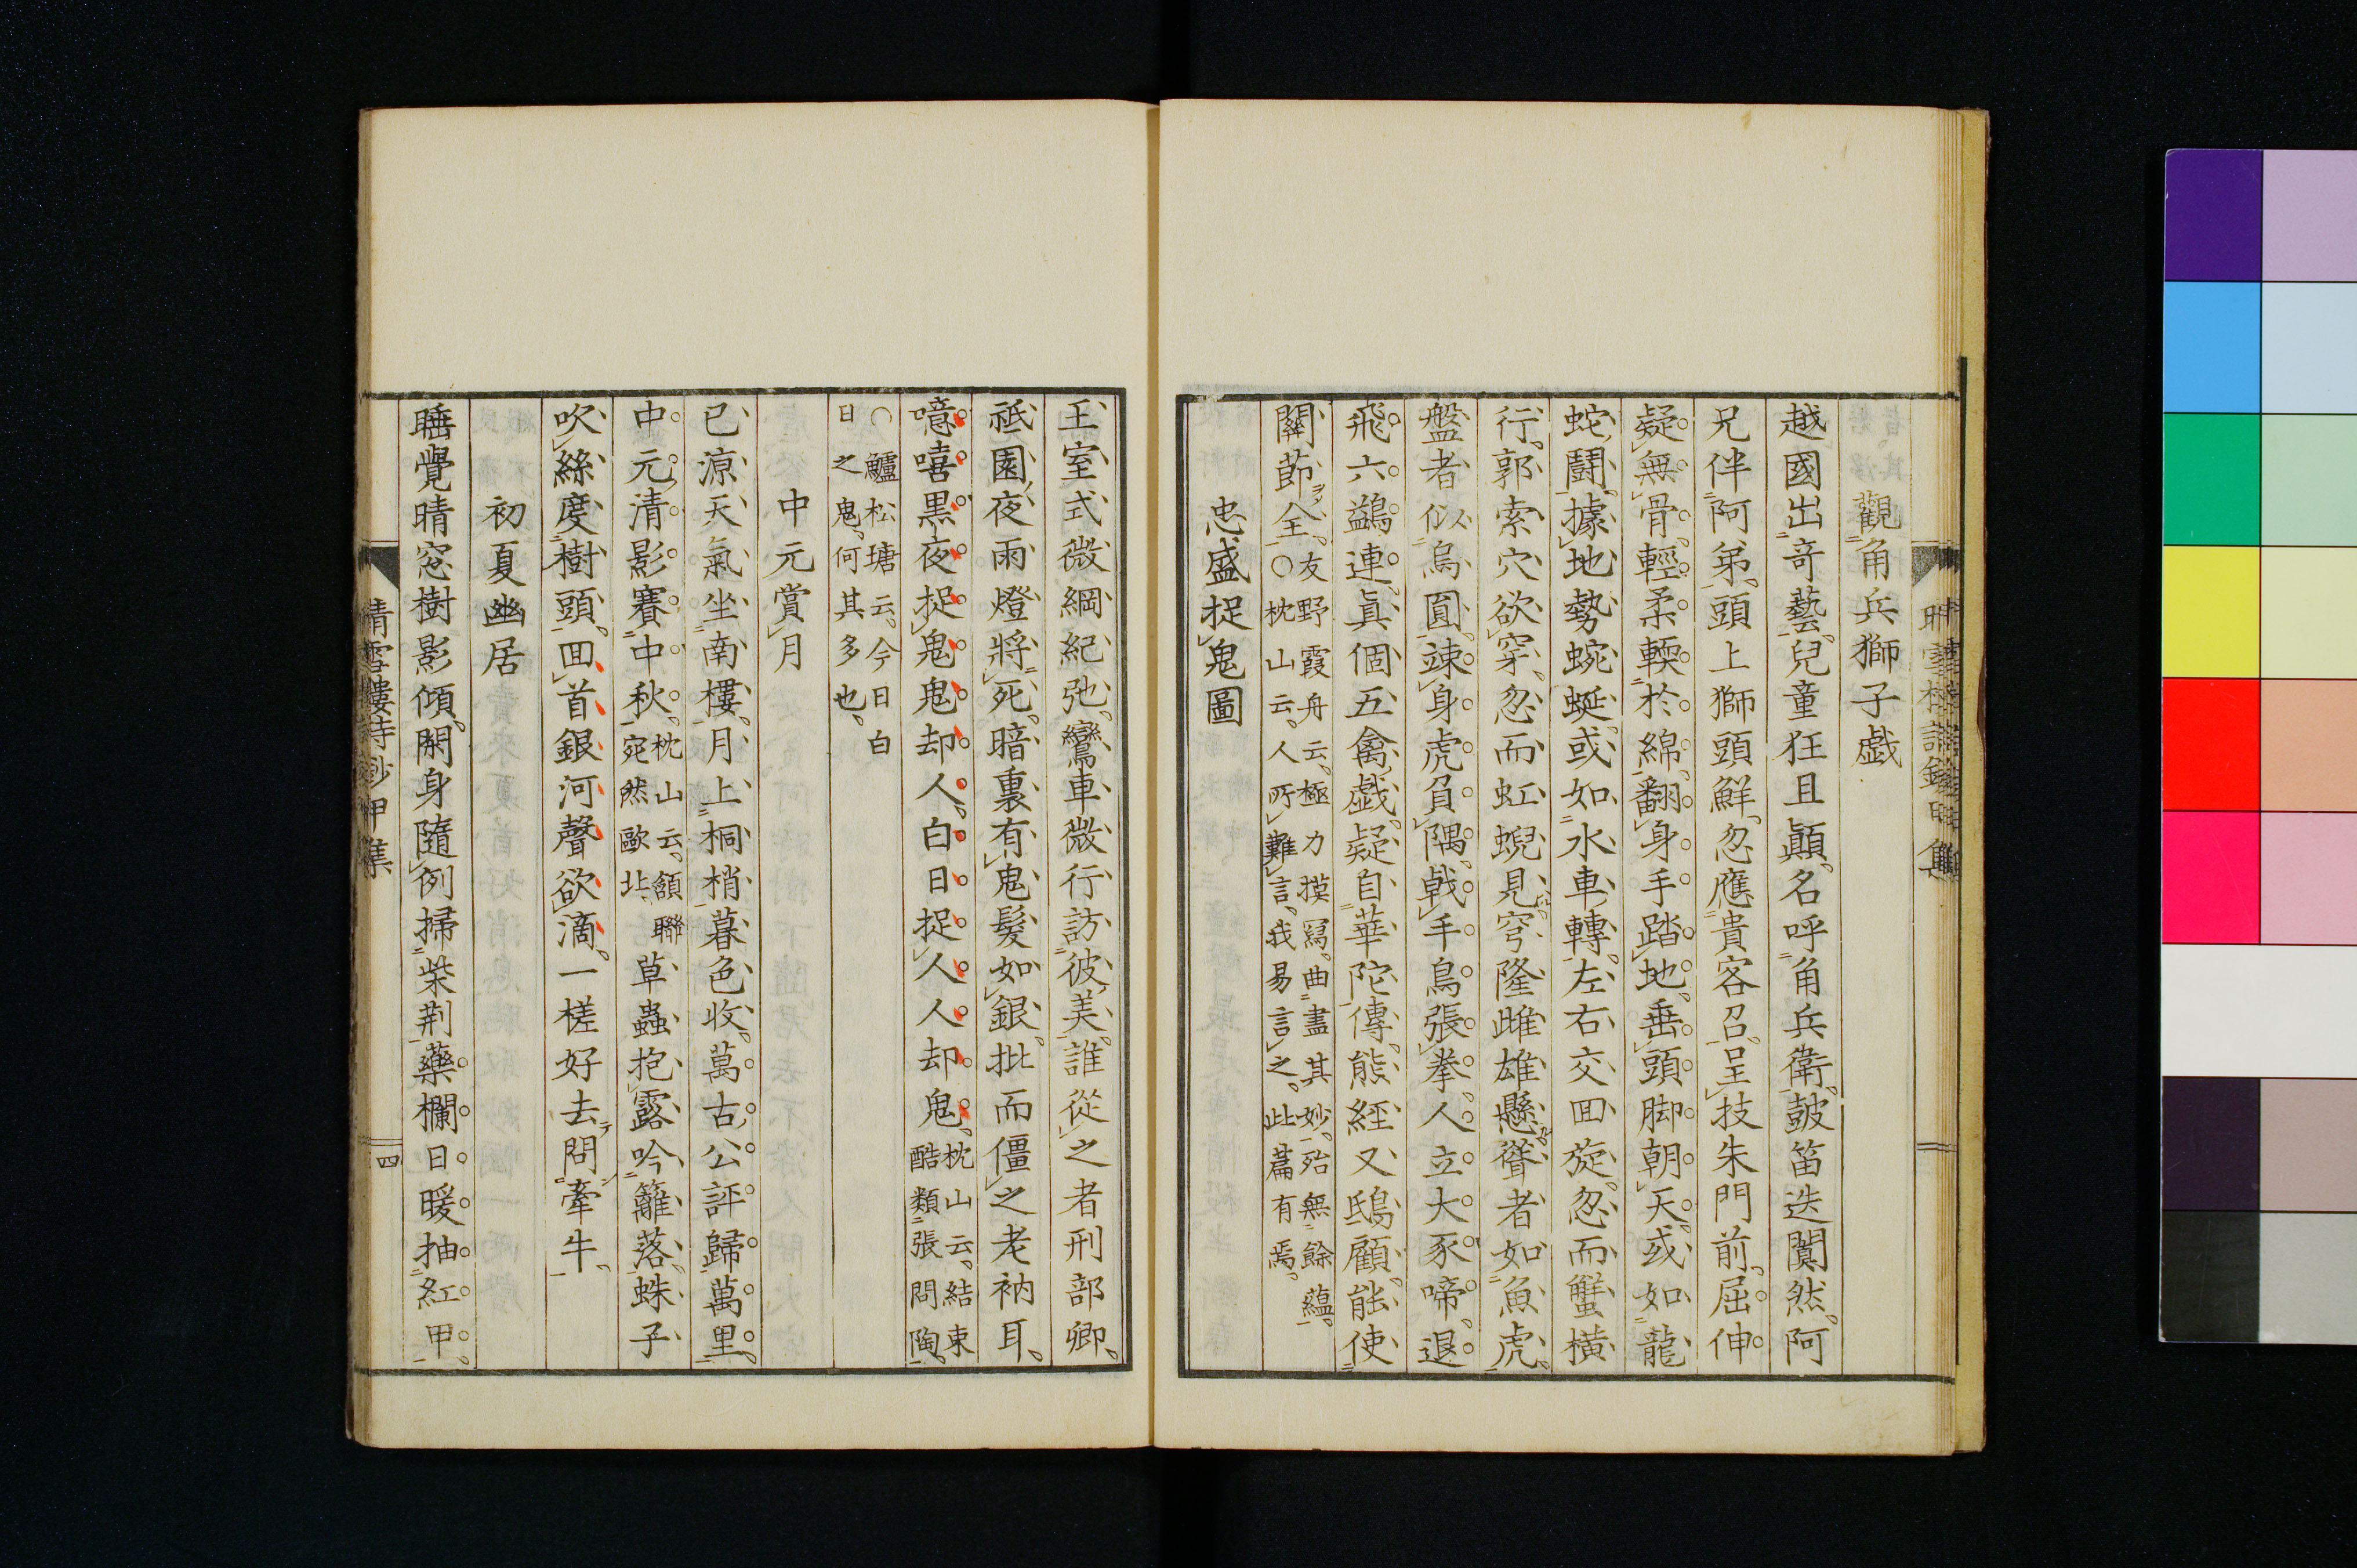 觀角兵獅子戯
越國出竒藝兒童狂且顚名呼角兵衛鼓笛迭闐然阿
兄伴阿弟頭上獅頭鮮忽應貴客召呈技朱門前屈伸
疑無骨輕柔輭於綿翻身手踏地垂頭脚朝天或如龍
蛇鬪據地勢蜿蜒或如水車轉左右交回旋忽而蟹横
行郭索穴欲穿忽而虹蜺見穹隆雌雄懸聳者如魚虎
盤者似烏圓竦身虎負隅戟手鳥張拳人立大豕啼退
飛六鷁連眞個五禽戯疑自華陀傳熊經又鴟顧能使
關莭全
友野霞舟云極力摸寫曲盡其妙殆無餘蘊
〇枕山云人所難言我易言之此篇有焉
忠盛捉鬼圖
王室式微綱紀弛鸞車微行訪彼美誰從之者刑部卿
祗園夜雨燈將死暗裏有鬼髮如銀批而僵之老衲耳
噫嘻黒夜捉鬼鬼却人白日捉人人却鬼
枕山云結束
酷類張問陶
〇鱸松塘云今日白
日之鬼何其多也
中元賞月
已涼天氣坐南樓月上桐梢暮色收萬古公評歸萬里
中元清影賽中秋
枕山云頷聯
宛然歐北
草蟲抱露吟籬落蛛子
吹絲度樹頭回首銀河聲欲滴一槎好去問牽牛
初夏幽居
睡覺晴窓樹影傾閑身隨例掃柴荆藥欄日暖抽紅甲
晴雪樓詩鈔甲集
四